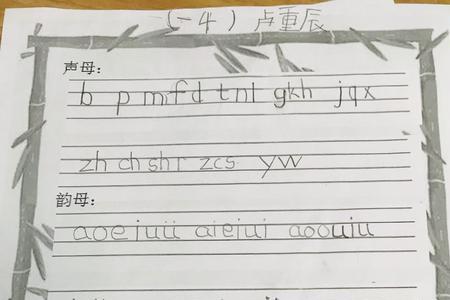 (一4) 卢重辰
声母:
b p m f d t n l g k h j q x
zh ch sh r z c s y w
韵母:
a o e i u ü ai ei ui ao ou iu